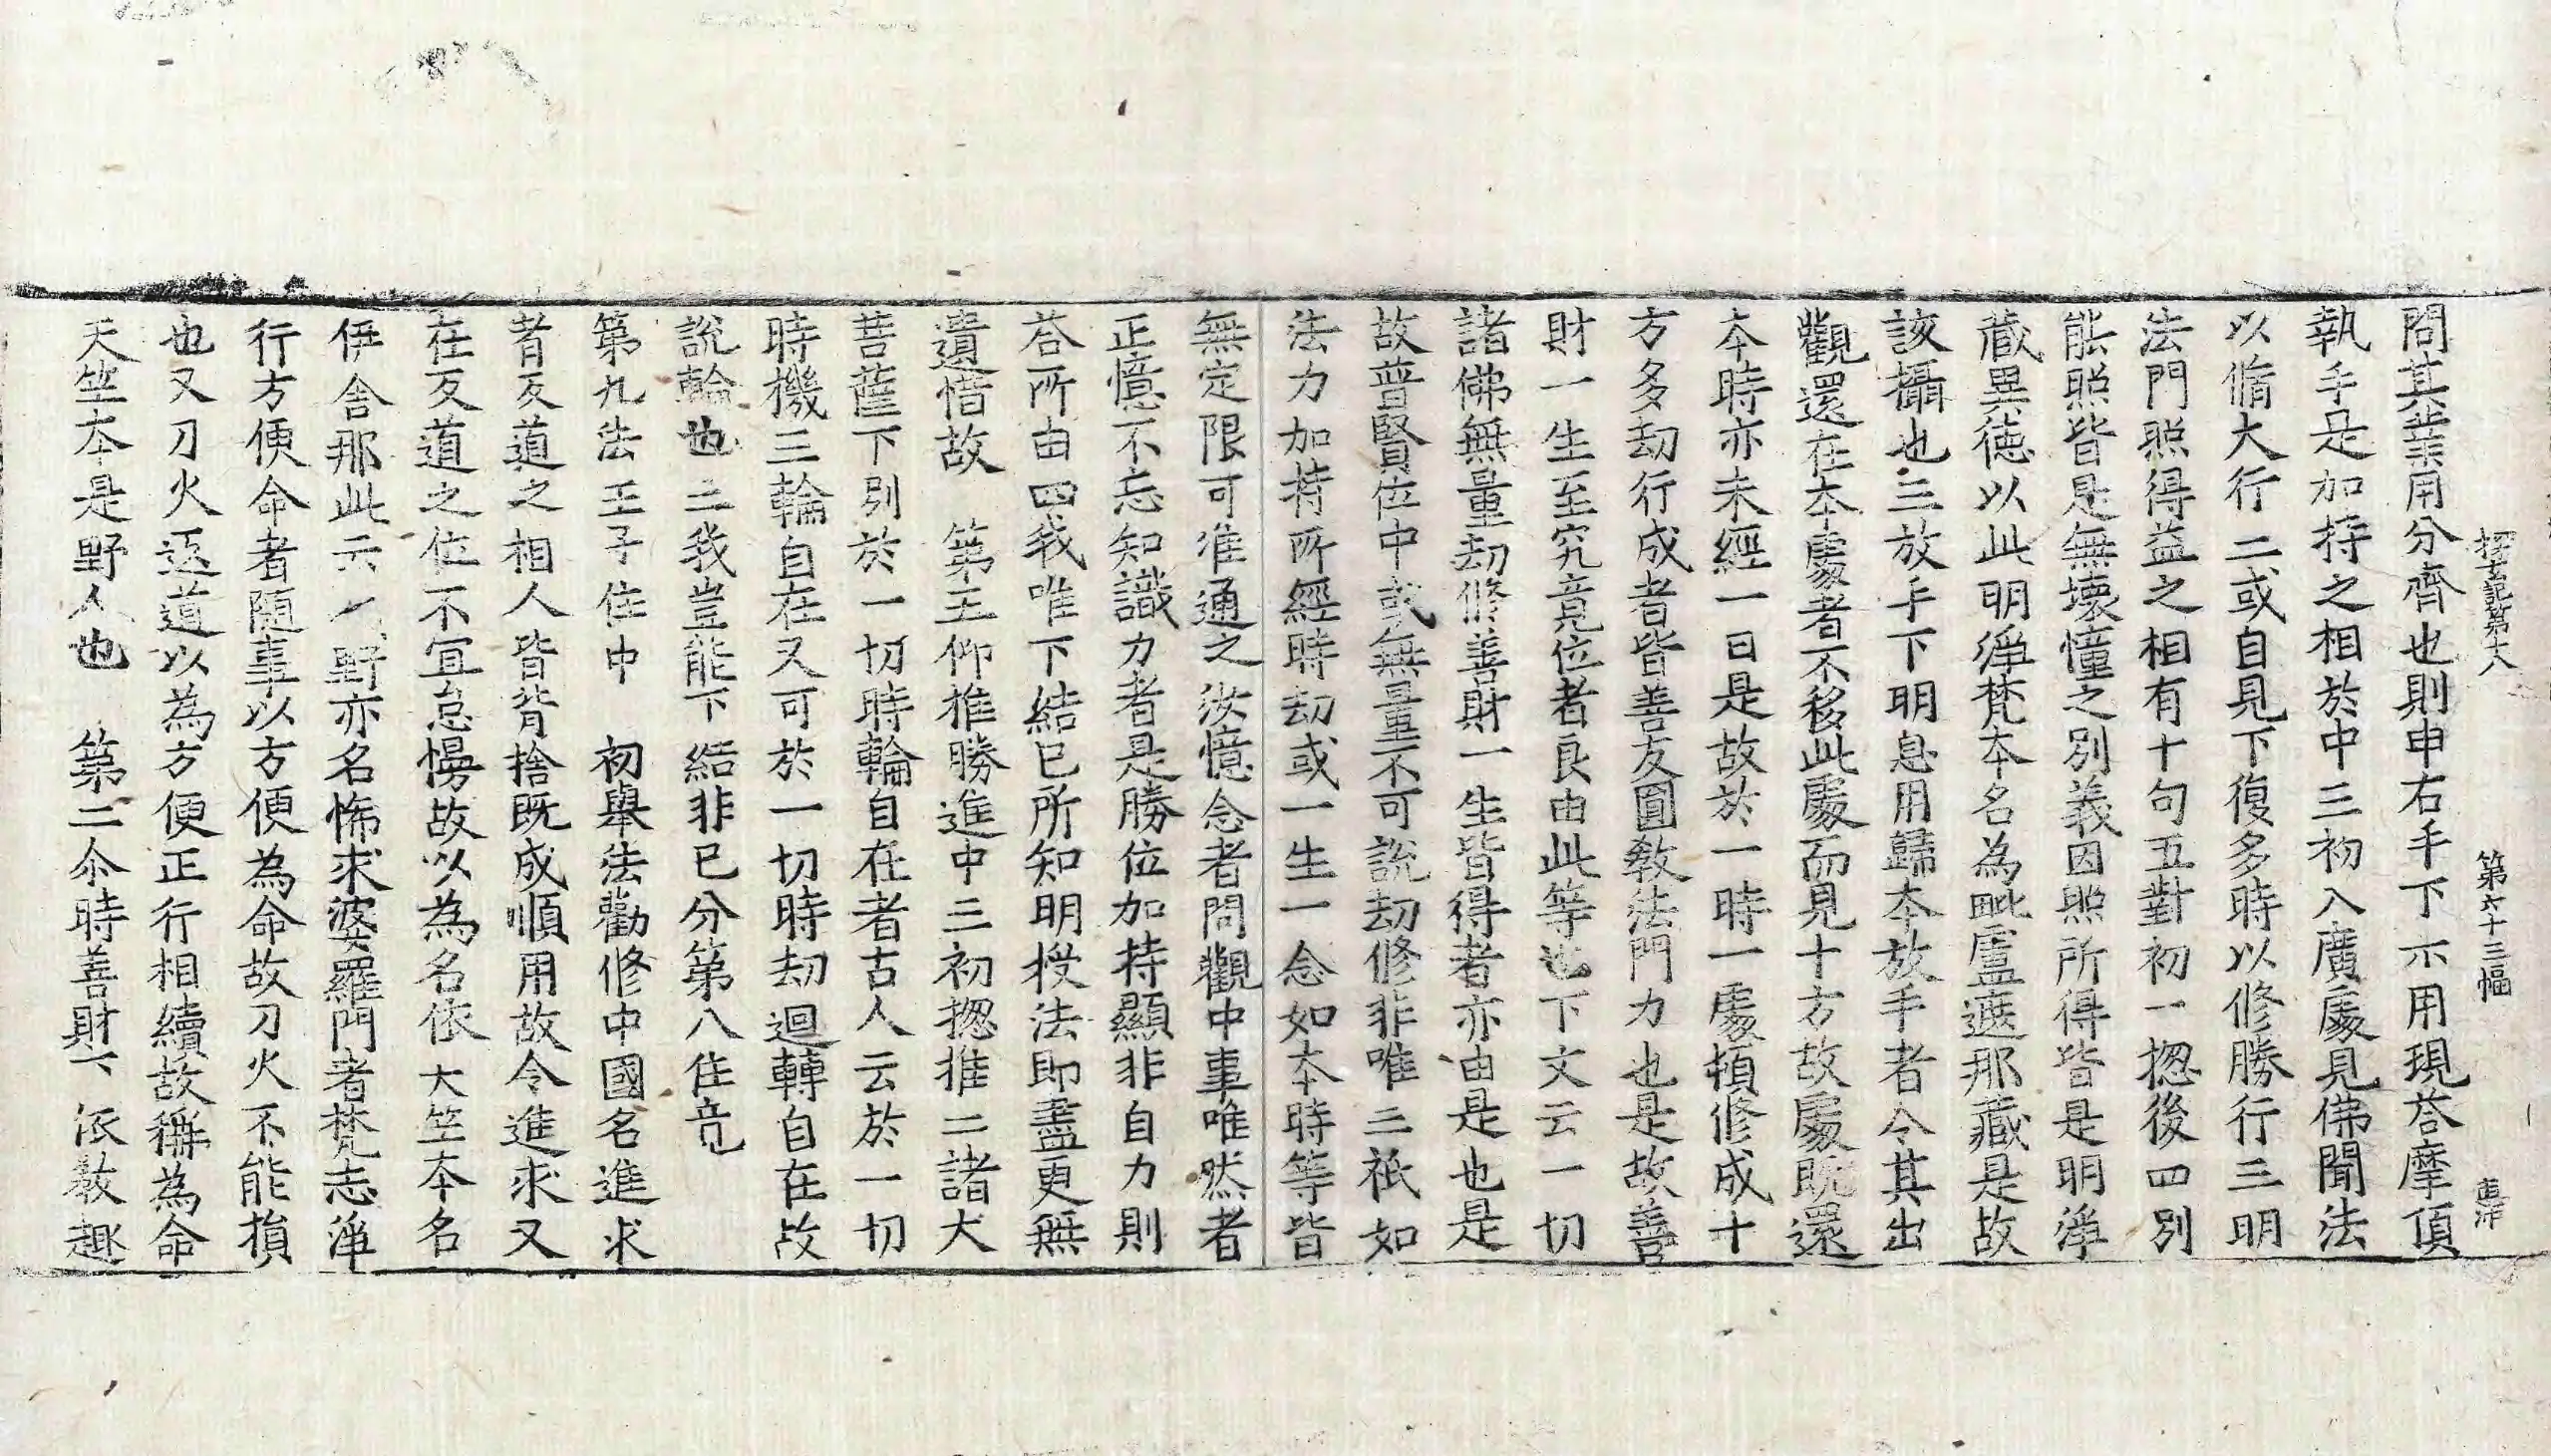 探玄記第十八　第六十三幅
問其業用分齊也則申右手下示用現荅摩頂
執手是加持之相於中三初入廣處見佛聞法
以脩大行二或自見下復多時以修勝行三明
法門照得益之相有十句五對初一揔後四別
能照皆是無壞憧之別義因照所得皆是明淨
藏異德以此明淨梵本名為毗盧遮那藏是故
該攝也三放手下明息用歸本放手者令其出
觀還在本處者不移此處而見十方故處既還
本時亦未經一日是故於一時一處頓修成十
方多劫行成者皆善友圓教法門力也是故善
財一生至究竟位者良由此等也下文云一切
諸佛無量劫修善財一生皆得者亦由是也是
故普賢位中或無量不可說劫修非唯三祇如
法力加持所經時劫或一生一念如本時等皆
無定限可准通之汝憶念者問觀中事唯然者
正憶不忘知識力者是勝位加持顯非自力則
荅所由四我唯下結已所知明授法即盡更無
遺惜故　第五仰推勝進中三初揔推二諸大
菩薩下別於一切時輪自在者古人云於一切
時機三輪自在又可於一切時劫迴轉自在故
說輪也三我豈能下結非已分第八住竟
第九法王子住中　初舉法勸修中國名進求
者友道之相人皆背捨既成順用故令進求又
在友道之位不宜怠慢故以為名依大竺本名
伊舍那此云　野亦名怖求婆羅門者梵志淨
行方便命者隨事以方便為命故刀火不能損
也又刀火返道以為方便正行相續故稱為命
天竺本是野人也　第二尒時善財下依敎趣